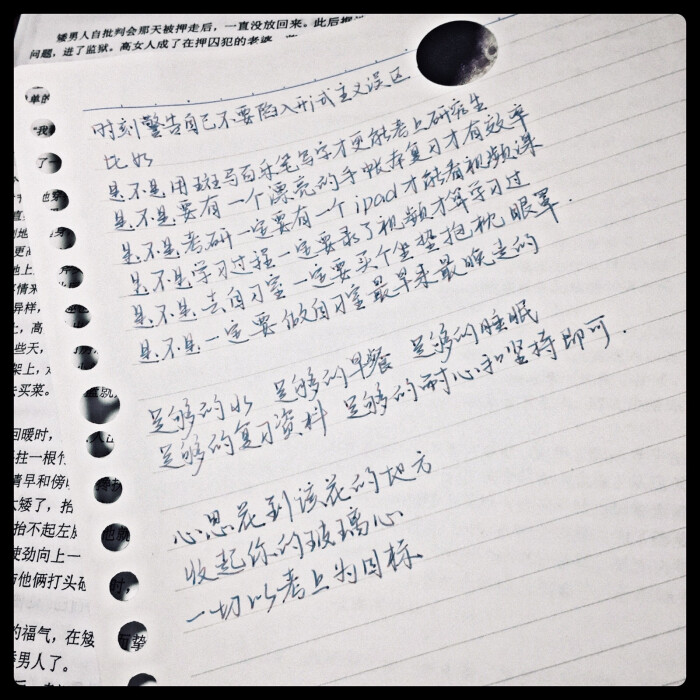 矮男人自批判会那天被押走后，一直没放回来。此后
问题，进了监狱。高女人成了在押囚犯的老婆，
时刻警告自己不要陷入形式主义误区
比如
是不是用斑马百乐笔写字才更能考上研究生
是不是要有一个漂亮的手帐本复习才有效率
是不是考研一定要有一个ipad才能看视频课
是不是学习过程一定要录了视频才算学习过
是不是去自习室一定要买个坐垫抱枕眼罩.
是不是一定要做自习室最早来最晚走的
足够的水 足够的早餐 足够的睡眠
足够的复习资料 足够的耐心和坚持即可.
心思花到该花的地方
收起你的玻璃心
一切以考上为目标
单的
了一
异样，
些天，
架上，
买菜。
回暖时，
拄一根
清早和傍
矮了，抬
抬不起左
使劲向上一
他俩打头
的福气，在矮
男人了。